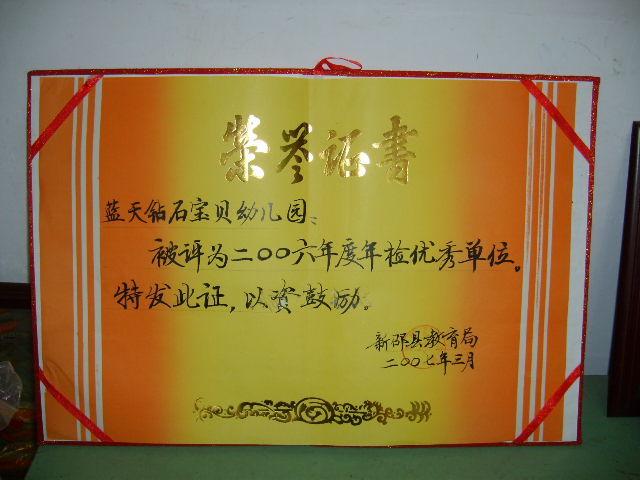 荣誉证书
蓝天钻石宝贝幼儿园:
被评为二〇〇六年度年检优秀单位。
特发此证,以资鼓励。
新邵县教育局
二〇〇七年三月